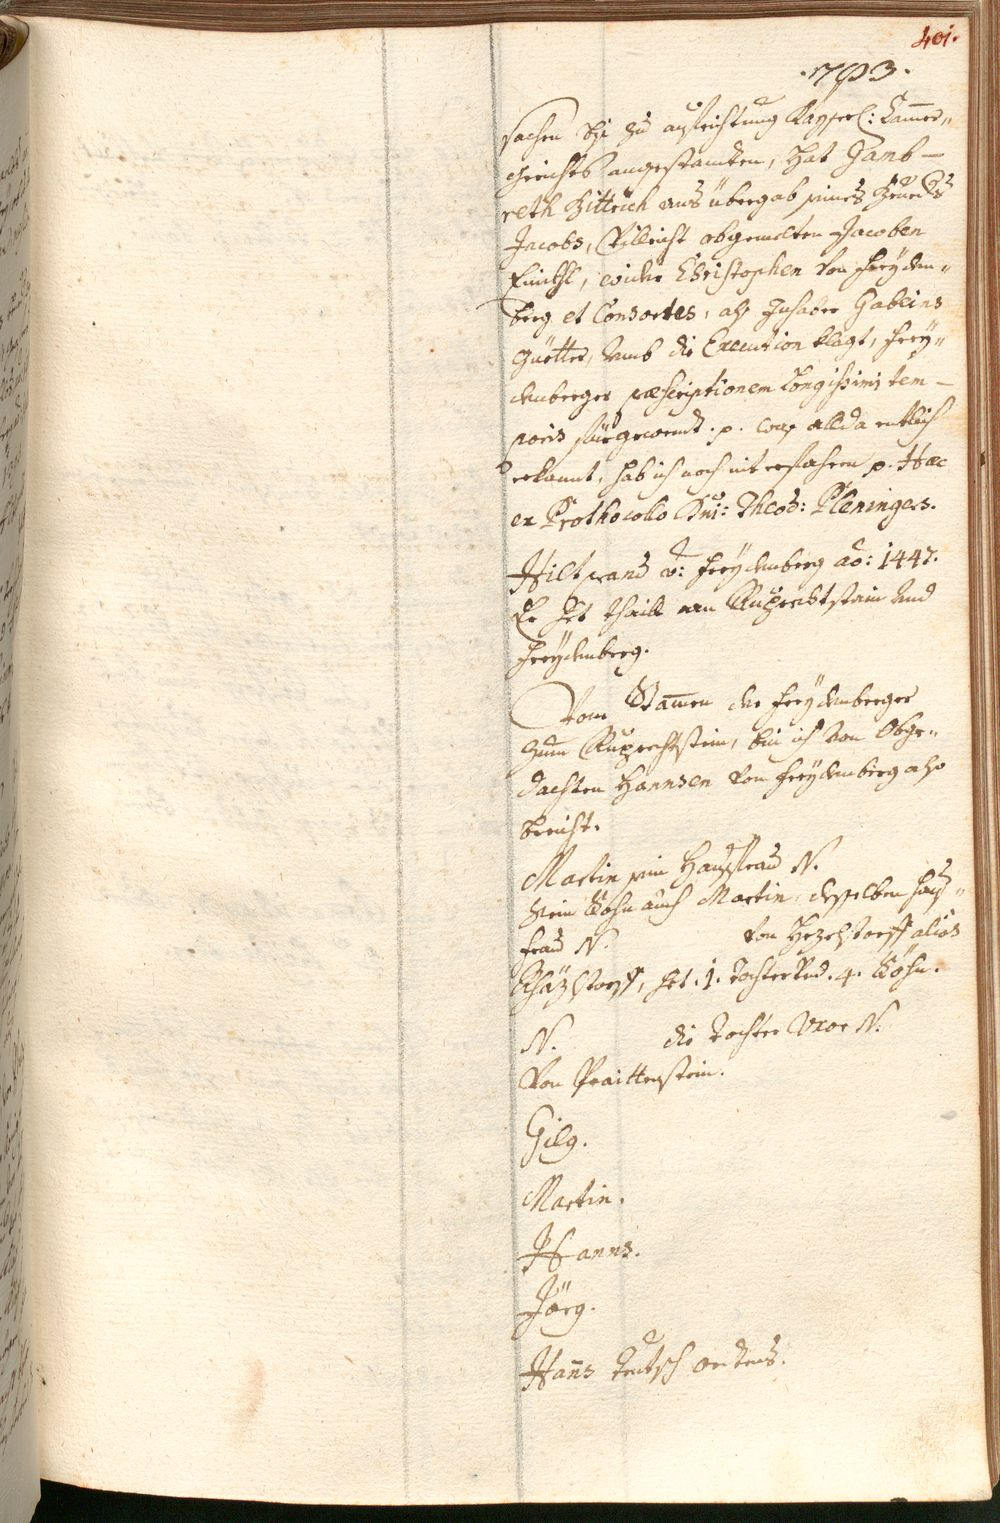 401.
.793.
sachen bei zu aufrichtung Kayserl: Cammer„
gerichts angestanden, hat Gamb—
reth Zittrich aus übergab seines Brueders
Jacobs, villeicht obgemelten Jacoben
wider Christophen von Freyden„
berg et Consortes, als Inhaber Gabeins
Güetter, umb die Execution klagt, Frey„
denberger præscriptionem Longissimi tem—
poris fürgewendt. p. was allda entlich
erkannt, hab ich noch nit erfahren p. Hæc
ex Prothocollo Dni: Theod: Pleningers.
Hiltprand v: Freydenberg aō: 1447.
Er het thaill am Ruprechtstain und
Freydenberg.
Vom Stammen der Freydenberger
zum Ruprechtstein, bin ich von Obge„
dachten Hannsen von Freydenberg also
bericht.
Martin sein Hausfrau N.
Sein Sohn auch Martin, desselben Haus„
frau N. von Hezelstorff alias
het .1. Tochter Und .4. Söhn.
N. die Tochter Uxor N.
Von Praittenstein.
Gilg.
Martin.
Hanns.
Jörg.
Hanns Teutsch Ordens.